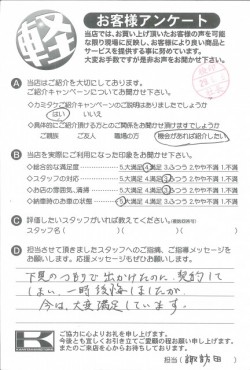 軽
お客様アンケート
当店では、お買い上げ頂いたお客様の声を可能
な限り現場に反映し、お客様により良い商品と
サービスを提供する事に努めています。
大変お手数ですが是非お声をお聞かせ下さい。
A 当店はご紹介を大切にしております。
ご紹介キャンペーンについてお聞かせ下さい。
・カミタケ紹介キャンペーンのご説明はありましたでしょうか
はい いいえ
・具体的にご紹介頂ける方とのご関係をお聞かせ頂けますでしょうか
ご親族 ご友人 職場の方 機会があれば紹介したい
B 当店を実際にご利用になった印象をお聞かせ下さい。
◇総合的な満足度 5.大満足 4.満足 3.ふつう 2.やや不満 1.不満
◇スタッフの対応 5.大満足 4.満足 3.ふつう 2.やや不満 1.不満
◇お店の雰囲気、清掃 5.大満足 4.満足 3.ふつう 2.やや不満 1.不満
◇納車時のお車の状態 5.大満足 4.満足 3.ふつう 2.やや不満 1.不満
C 評価したいスタッフがいれば教えてください。
スタッフ名( )( )( )
D 担当させて頂きましたスタッフへのご指摘、ご指導メッセージを
お願いします。応援メッセージもぜひお願いします。
下見のつもりで出かけたのに、契約して
しまい、一時後悔しましたが
今は、大変満足しています。
ご協力に心よりお礼を申し上げます。
今後とも宜しくお引き立てご愛顧の程お願い申し上げます。
またのご来店を心からお待ちしております。
担当( 諏訪田 )